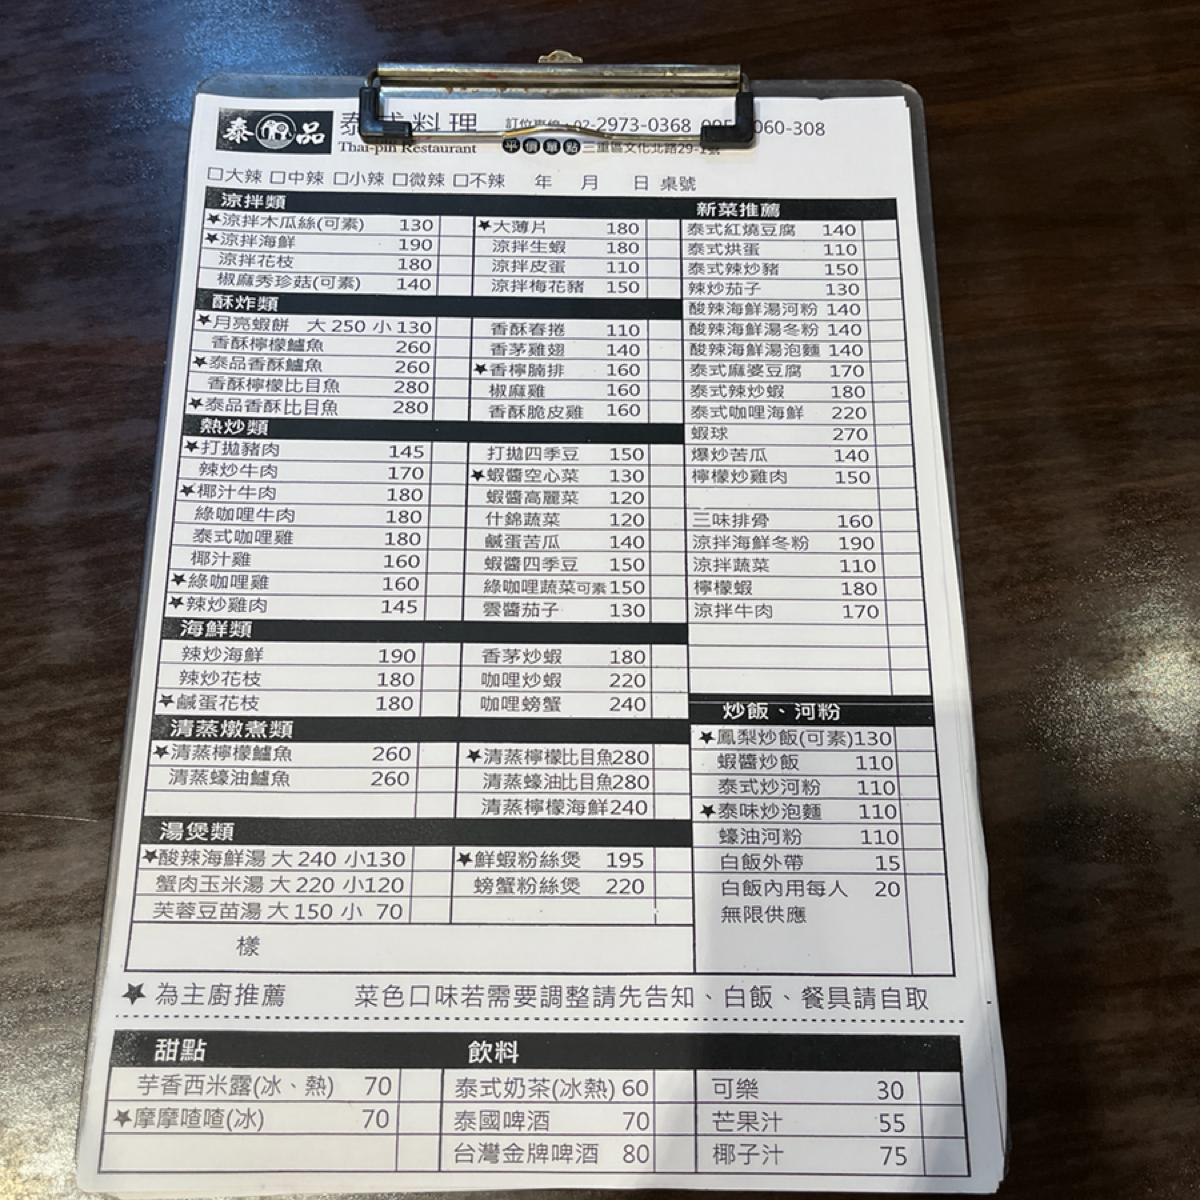 泰 品 泰式料理 訂位專線:02-2973-0368 060-308
Thai-pin Restaurant 平價單點 三重區文化北路29-1號
□大辣 □中辣 □小辣 □微辣 □不辣 年 月 日 桌號
涼拌類
★涼拌木瓜絲(可素) 130
★涼拌海鮮 190
涼拌花枝 180
椒麻秀珍菇(可素) 140
★大薄片 180
涼拌生蝦 180
涼拌皮蛋 110
涼拌梅花豬 150
酥炸類
★月亮蝦餅 大250 小130
香酥檸檬鱸魚 260
★泰品香酥鱸魚 260
香酥檸檬比目魚 280
★泰品香酥比目魚 280
香酥春捲 110
香茅雞翅 140
★香檸腩排 160
椒麻雞 160
香酥脆皮雞 160
熱炒類
★打拋豬肉 145
辣炒牛肉 170
★椰汁牛肉 180
綠咖哩牛肉 180
泰式咖哩雞 180
椰汁雞 160
★綠咖哩雞 160
★辣炒雞肉 145
打拋四季豆 150
★蝦醬空心菜 130
蝦醬高麗菜 120
什錦蔬菜 120
鹹蛋苦瓜 140
蝦醬四季豆 150
綠咖哩蔬菜可素150
雲醬茄子 130
海鮮類
辣炒海鮮 190
辣炒花枝 180
★鹹蛋花枝 180
香茅炒蝦 180
咖哩炒蝦 220
咖哩螃蟹 240
清蒸燉煮類
★清蒸檸檬鱸魚 260
清蒸蠔油鱸魚 260
★清蒸檸檬比目魚280
清蒸蠔油比目魚280
清蒸檸檬海鮮240
湯煲類
★酸辣海鮮湯 大240 小130
蟹肉玉米湯 大220 小120
芙蓉豆苗湯 大150 小 70
★鮮蝦粉絲煲 195
螃蟹粉絲煲 220
樣
新菜推薦
泰式紅燒豆腐 140
泰式烘蛋 110
泰式辣炒豬 150
辣炒茄子 130
酸辣海鮮湯河粉 140
酸辣海鮮湯冬粉 140
酸辣海鮮湯泡麵 140
泰式麻婆豆腐 170
泰式辣炒蝦 180
泰式咖哩海鮮 220
蝦球 270
爆炒苦瓜 140
檸檬炒雞肉 150
三味排骨 160
涼拌海鮮冬粉 190
涼拌蔬菜 110
檸檬蝦 180
涼拌牛肉 170
炒飯、河粉
★鳳梨炒飯(可素)130
蝦醬炒飯 110
泰式炒河粉 110
★泰味炒泡麵 110
蠔油河粉 110
白飯外帶 15
白飯內用每人 20
無限供應
★ 為主廚推薦 菜色口味若需要調整請先告知、白飯、餐具請自取
甜點
芋香西米露(冰、熱) 70
★摩摩喳喳(冰) 70
飲料
泰式奶茶(冰熱) 60
泰國啤酒 70
台灣金牌啤酒 80
可樂 30
芒果汁 55
椰子汁 75